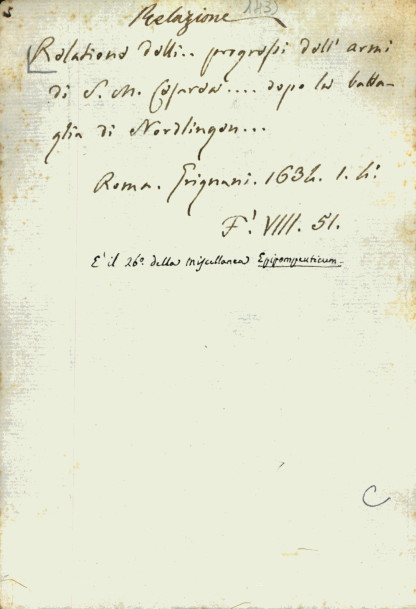 Relazione 143
Relatione delli.. progressi dell' armi
di S. M. Cesarea.... dopo la batta-
glia di Nordlingen...
Roma. Grignani. 1634. 1. 4:
F! VIII. 51.
E' il 26º della miscellanea Epipompeuticum.
C